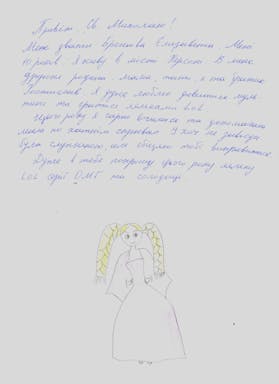 Привіт, Св. Миколаю!
Мене звати Єлизавета. Мені
років. Я живу в місті Херсон. В мене
родина: мама, тато, я та братик
Я дуже люблю дивитися мульт
та гратися ляльками LoL
Цього року я гарно вчилася та допомагала
мамі по хатнім справам. Хоч не завжди
була слухняною, але обіцяю тобі виправитися.
Дуже в тебе попрошу цього року ляльку
LoL серії OMG та солодощі